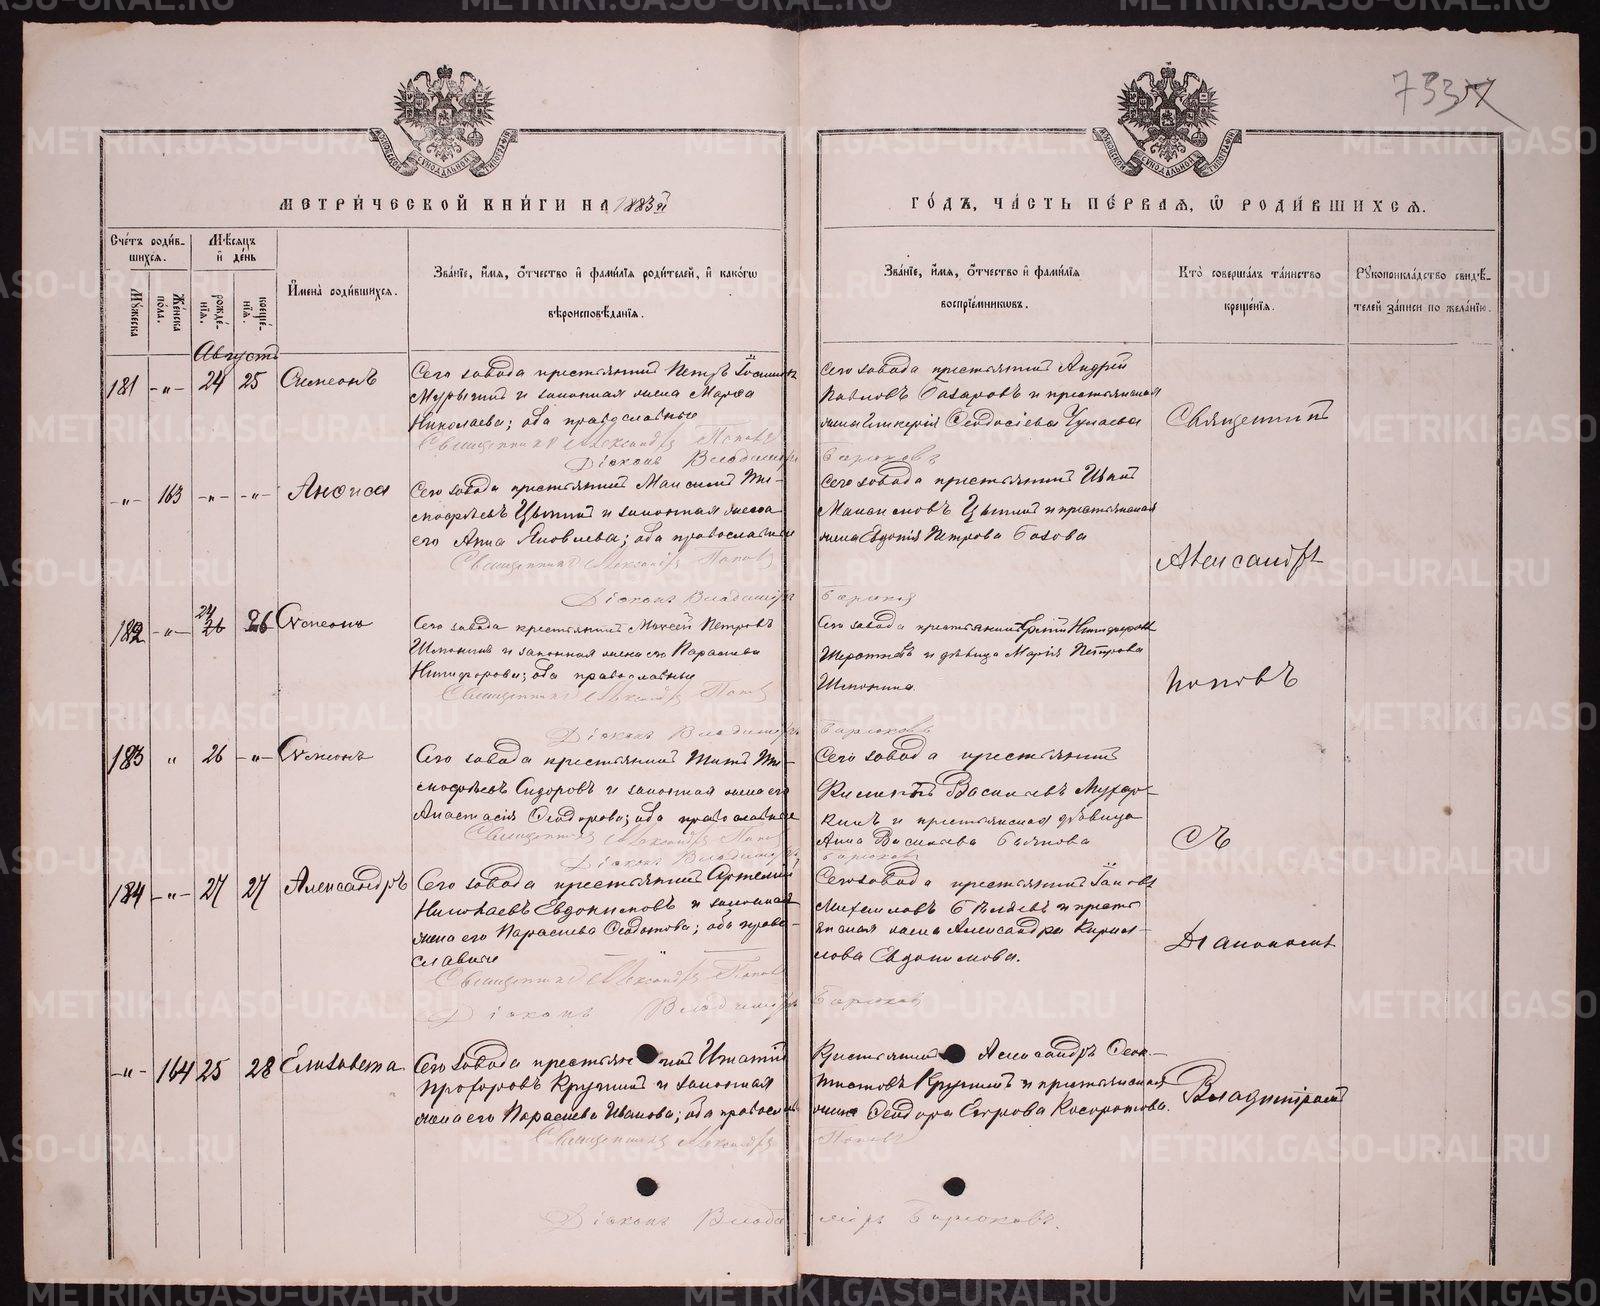 733
МЕТРИ́ЧЕСКОЙ КНИ́ГИ НА 1883й
ГО́ДЪ, ЧА́СТЬ ПЕ́РВАЯ, Ѿ РОДИ́ВШИХСЯ.
Сче́тъ роди́в-
шихся.
Му́жеска
Же́нска
по́ла.
Мѣ́сяцъ
и҆ де́нь
рожде́-
нїя.
креще́-
нїя.
И҆мена̀ роди́вшихся.
Зва́нїе, и҆́мя, ѻ҆́тчество и҆ фами́лїя роди́телей, и҆ како́гѡ
вѣроисповѣ́данїя.
Зва́нїе, и҆́мя, ѻ҆́тчество и҆ фами́лїя
воспрїе́мниковъ.
Кто̀ соверша́лъ та́инство
креще́нїя.
Рꙋкоприкла́дство свидѣ́-
телей за́писи по жела́нїю.
Августъ
181 -"- 24 25 Симеонъ
Сего завода крестьянинъ Петръ
и законная жена Марѳа
Николаева; оба православные
Священникъ Александръ Поповъ
Діаконъ Владиміръ Бирюковъ
Сего завода крестьянинъ Андрей
Павловъ Базаровъ и крестьянская
жена Гликерія Ѳеодосіева
Священникъ
-"- 163 -"- -"- Анѳиса
Сего завода крестьянинъ Максимъ Ти-
моѳѣевъ и законная жена
его Анна Яковлева; оба православные
Священникъ Александръ Поповъ
Діаконъ Владиміръ Бирюковъ
Сего завода крестьянинъ
и крестьянская
жена Евдокія Петрова
Александръ
182 -"- 24 26 26 Сѵмеонъ
Сего завода крестьянинъ Моисей Петровъ
и законная жена его Параскева
Никифорова; оба православные
Священникъ Александръ Поповъ
Діаконъ Владиміръ Бирюковъ
Сего завода крестьянинъ
и дѣвица Марія Петрова
Поповъ
183 " 26 -"- Сѵмеонъ
Сего завода крестьянинъ Титъ Ти-
моѳѣевъ Сидоровъ и законная жена его
Анастасія Ѳеодорова; оба православные
Священникъ Александръ Поповъ
Діаконъ Владиміръ Бирюковъ
Сего завода крестьянинъ
Василіевъ
и крестьянская дѣвица
Анна Василіева
Съ
184 -"- 27 27 Александръ
Сего завода крестьянинъ Артемій
Николаевъ Евдокимовъ и законная
жена его Параскева Ѳедотова; оба право-
славные
Священникъ Александръ Поповъ
Діаконъ Владиміръ Бирюковъ
Сего завода крестьянинъ Іаковъ
Михаиловъ Бѣляевъ и кресть
янская жена Александра Кирил-
лова Евдокимова.
Діакономъ
-"- 164 25 28 Елизавета
Сего завода крестьянинъ Игнатій
Прохоровъ Крупинъ и законная
жена его Параскева Иванова; оба православн
Священникъ Александръ Поповъ
Діаконъ Владиміръ Бирюковъ.
Крестьянинъ Александръ Ѳеок-
тистовъ Крупинъ и крестьянская
жена Ѳеодора Егорова Косоротова.
Владиміромъ
METRIKI.GASO-URAL.RU